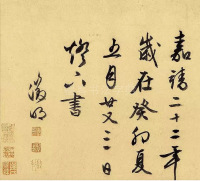 嘉靖二十二年
歲在癸卯夏
五月廿又三日
燈下書
徵明